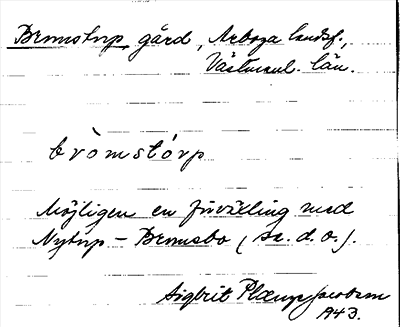 Brunstorp, gård, Arboga landsf.,
Västmanl. län.
bròmstórp
Möjligen en förväxling med
Nytorp – Brunnsbo (se. d. o.).
Sigbrit Plænge Jacobson
1943.